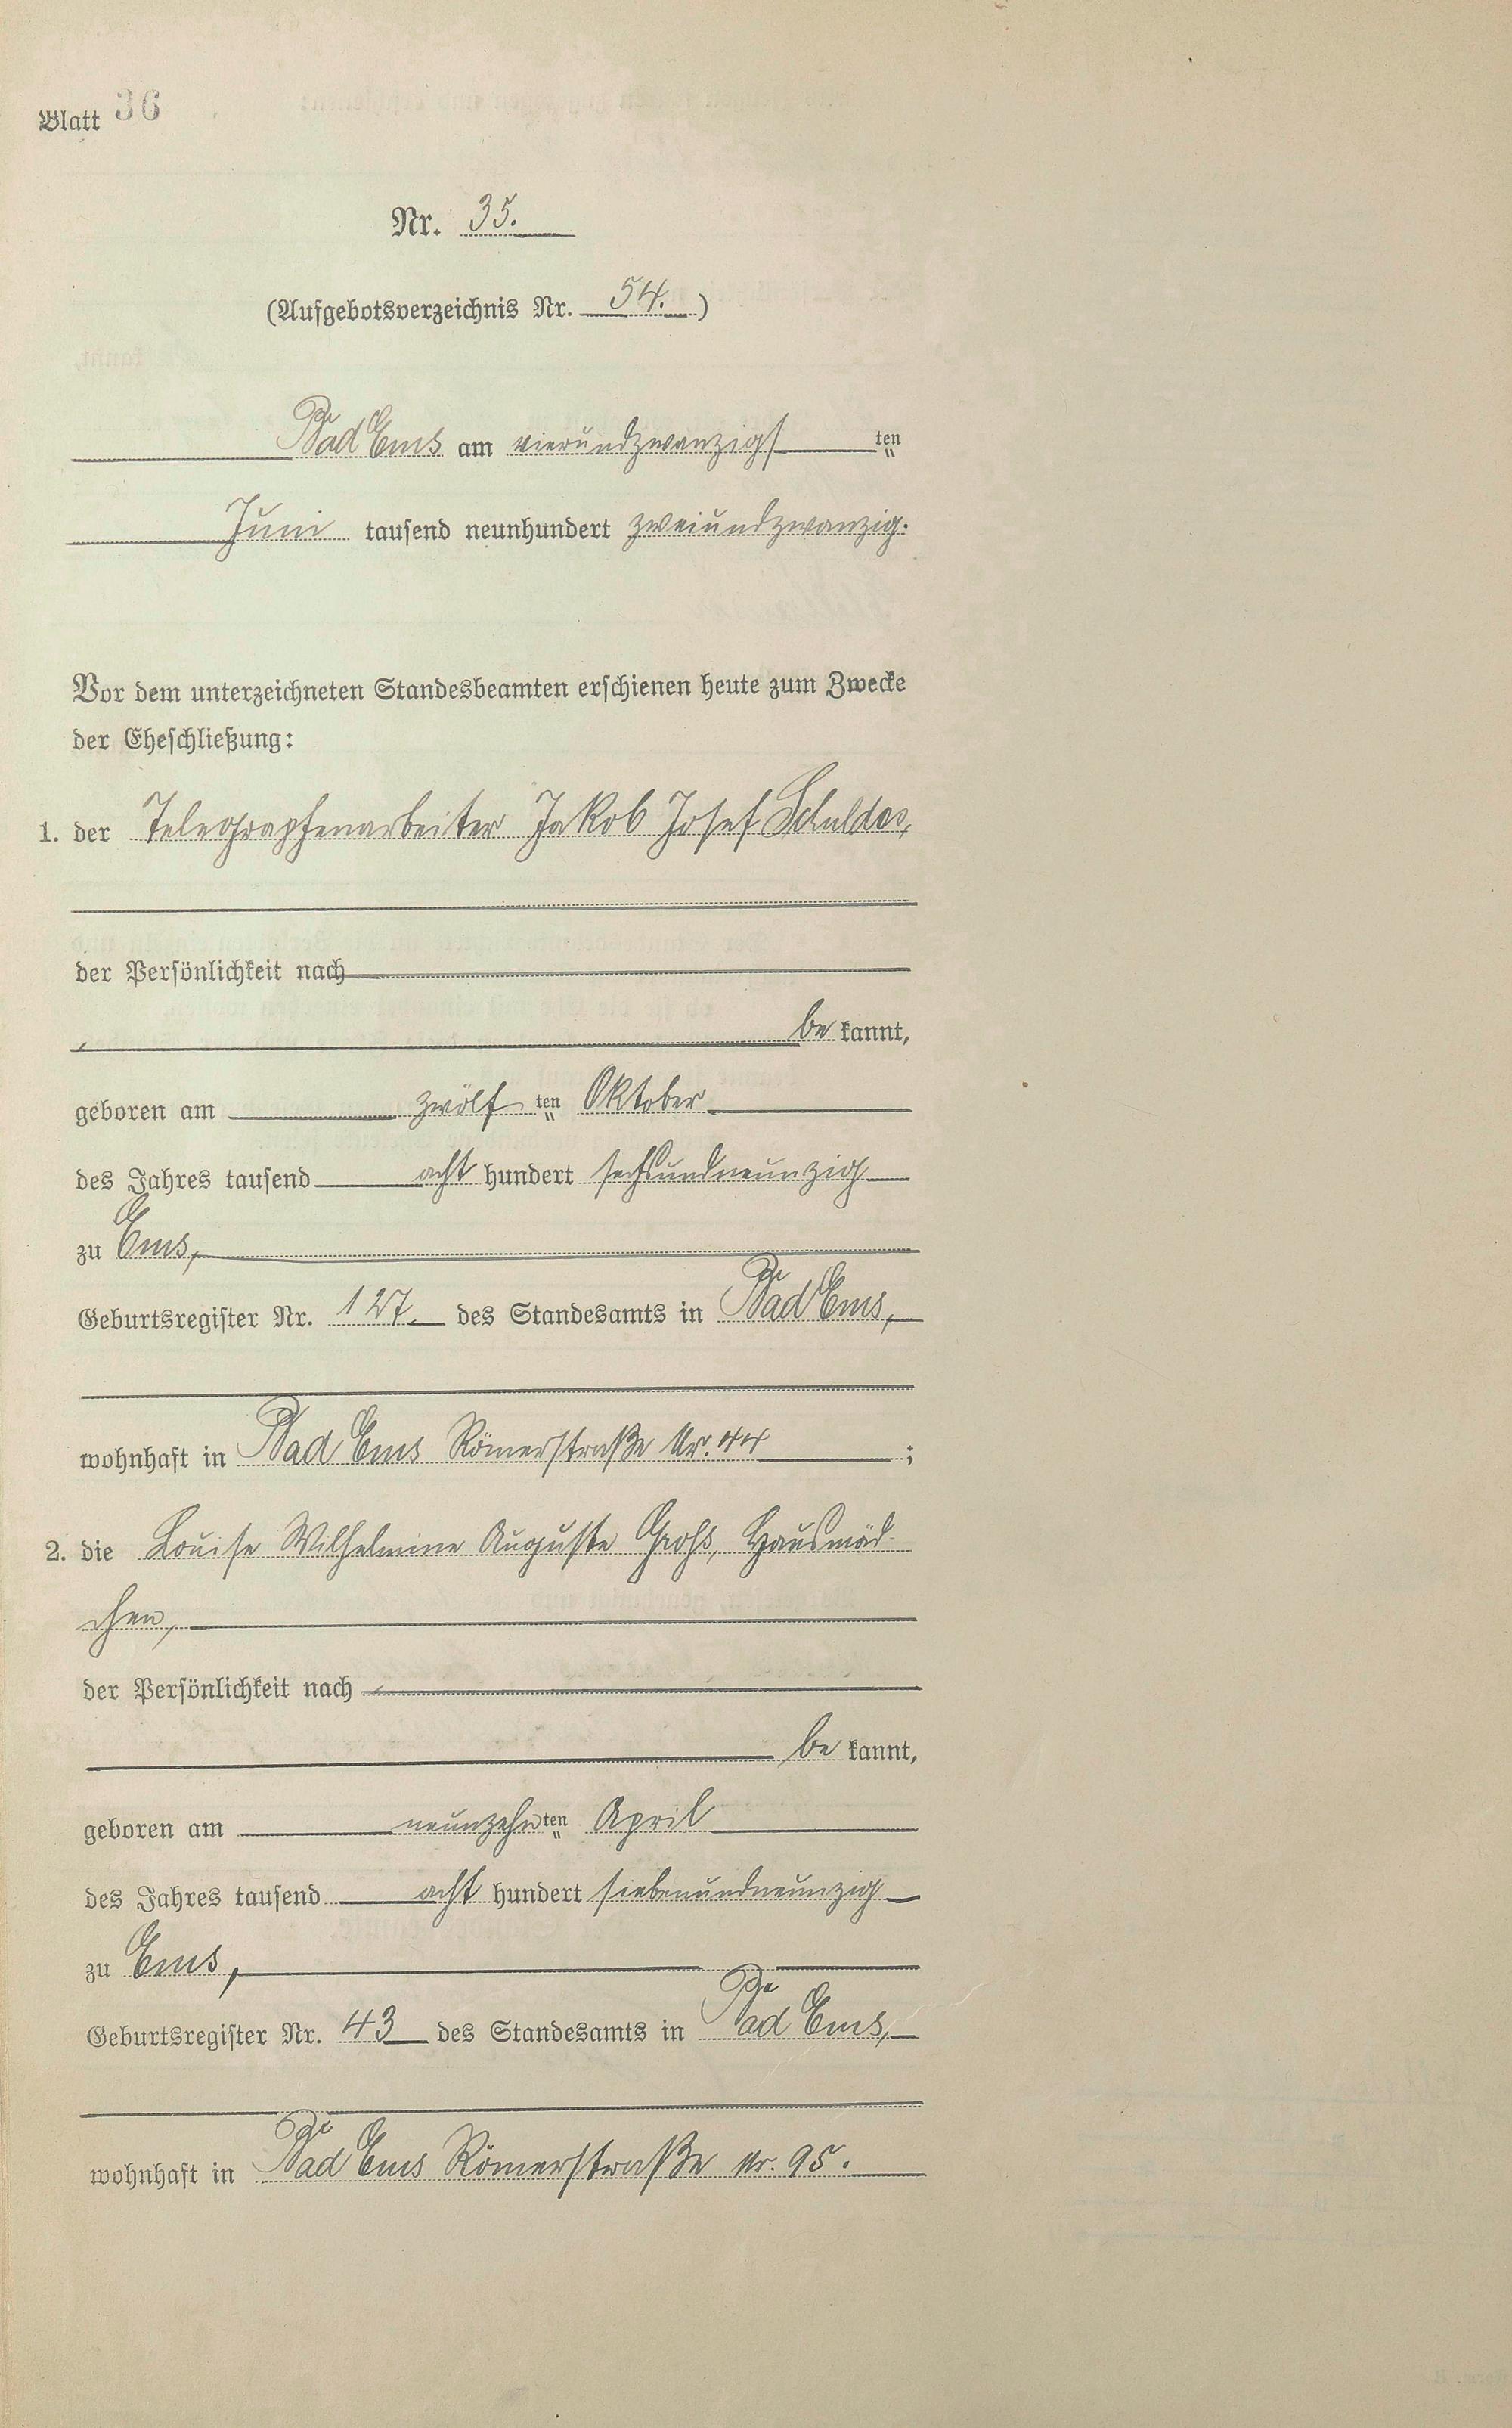 Blatt 36
Nr. 35.
(Aufgebotsverzeichnis Nr. 54.)
Bad Ems am vierundzwanzigsten
Juni tausend neunhundert zweiundzwanzig.
Vor dem unterzeichneten Standesbeamten erschienen heute zum Zwecke
der Eheschließung:
1. der Telegraphenarbeiter Jakob Josef Schuldes,
der Persönlichkeit nach
be kannt,
geboren am zwölf ten Oktober
des Jahres tausend acht hundert sechsundneunzig
zu Ems,
Geburtsregister Nr. 127. des Standesamts in Bad Ems,
wohnhaft in Bad Ems Römerstraße Nr. 44 ;
2. die Louise Wilhelmine Auguste Groß, Hausmäd-
chen,
der Persönlichkeit nach
be kannt,
geboren am neunzehnten April
des Jahres tausend acht hundert siebenundneunzig
zu Ems,
Geburtsregister Nr. 43 des Standesamts in Bad Ems,
wohnhaft in Bad Ems Römerstraße Nr. 95.